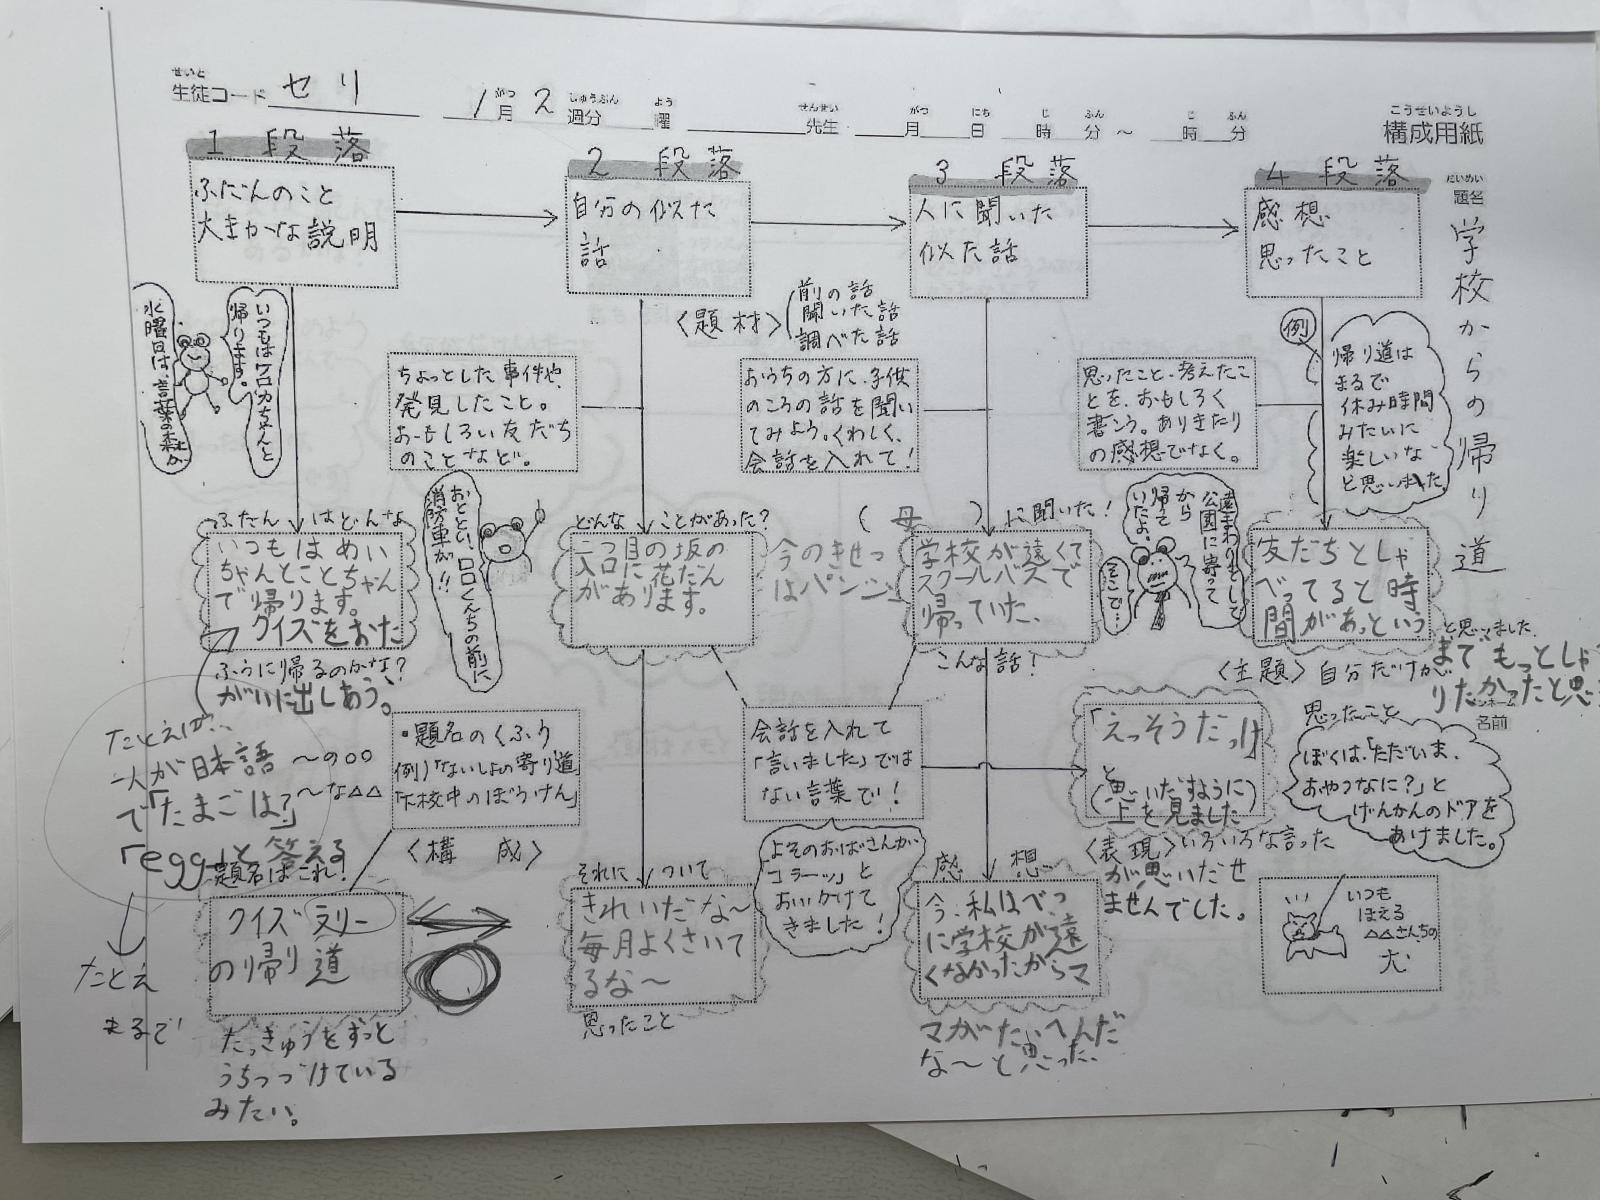 せいと
生徒コード セリ
1月 2週分 曜
がつ しゅうぶん よう
せんせい がつ にち じ ふん じ ふん
先生 月 日 時 分 ～ 時 分
こうせいようし
構成用紙
だいめい
題名
学校からの帰り道
1 段落
ふだんのこと
大まかな説明
2 段落
自分の似た
話
3 段落
人に聞いた
似た話
4 段落
感想
思ったこと
いつもはケロカちゃんと
帰ります。
水曜日は、言葉の森が
〈題材〉
前の話
聞いた話
調べた話
ちょっとした事件や、
発見したこと。
おもしろい友だち
のことなど。
おうちの方に、子供
のころの話を聞い
てみよう。くわしく、
会話を入れて！
思ったこと、考えたこ
とを、おもしろく
書こう。ありきたり
の感想でなく。
例
帰り道は
まるで
休み時間
みたいに
楽しいな
と思いました。
ふだんはどんな
いつもはめい
ちゃんとことちゃん
で帰ります。
クイズをおた
ふうに帰るのかな？
がいに出しあう。
おととい、ロロくんちの前に
消防車が！！
どんなことがあった？
二つ目の坂の
入口に花だん
があります。
今のきせつ
はパンジー
（母）に聞いた！
学校が遠くて
スクールバスで
帰っていた、
こんな話！
遠まわりをして
公園に寄って
から
帰って
いたよ。
そこで…
友だちとしゃ
べってると時
間があっという
まで もっとしゃ
りたかったと思
と思いました
〈主題〉自分だけが
名前
たとえば、
一人が日本語
で「たまごは？」
「egg」と答える
～の○○
～な△△
・題名のくふう
例)「ないしょの寄り道」
「下校中のぼうけん」
〈構成〉
会話を入れて
「言いました」では
ない言葉で！
「えっそうだっけ
と
(思いだすように)
上を見ました
〈表現〉いろいろな言った
が思いだせ
ませんでした。
思ったこと
ぼくは、「ただいま、
おやつなに？」と
げんかんのドアを
あけました。
よそのおばさんが
「コラーッ」と
おいかけて
きました！
題名はこれ！
クイズラリー
の帰り道
たとえ
まるで
たっきゅうをずっと
うちつづけている
みたい。
それについて
きれいだな～
毎月よくさいて
るな～
思ったこと
感想
今、私はべつ
に学校が遠
くなかったからマ
マがたいへんだ
な～と思った、
いつも
ほえる
△△さんちの
犬